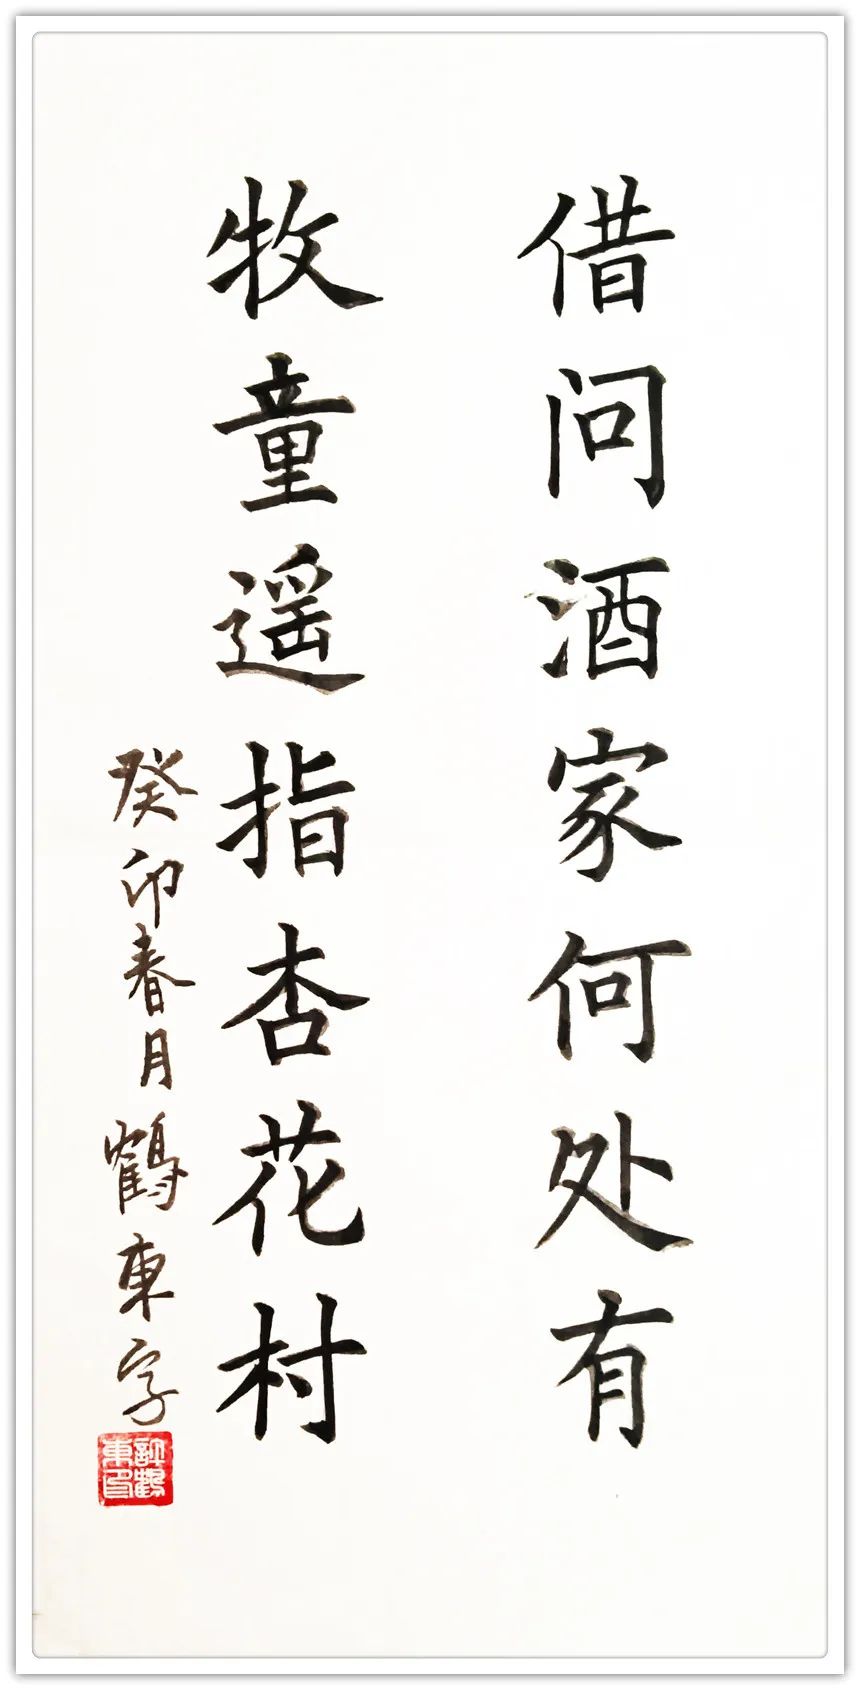 借问酒家何处有
牧童遥指杏花村
癸卯春月鶴東字